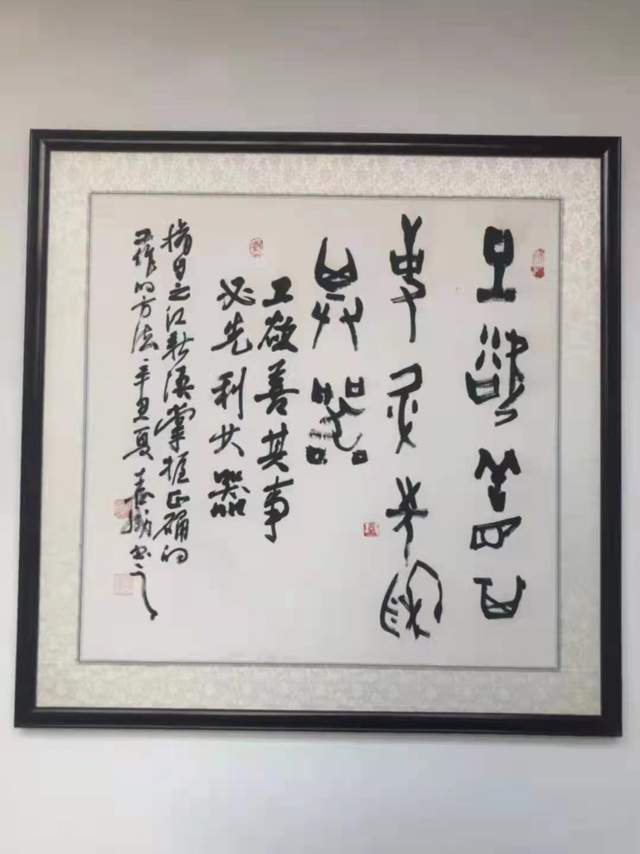 工欲善其
事必先利
其器
工欲善其事
必先利其器
摘自之江新语掌握正确的
工作的方法辛丑夏书之